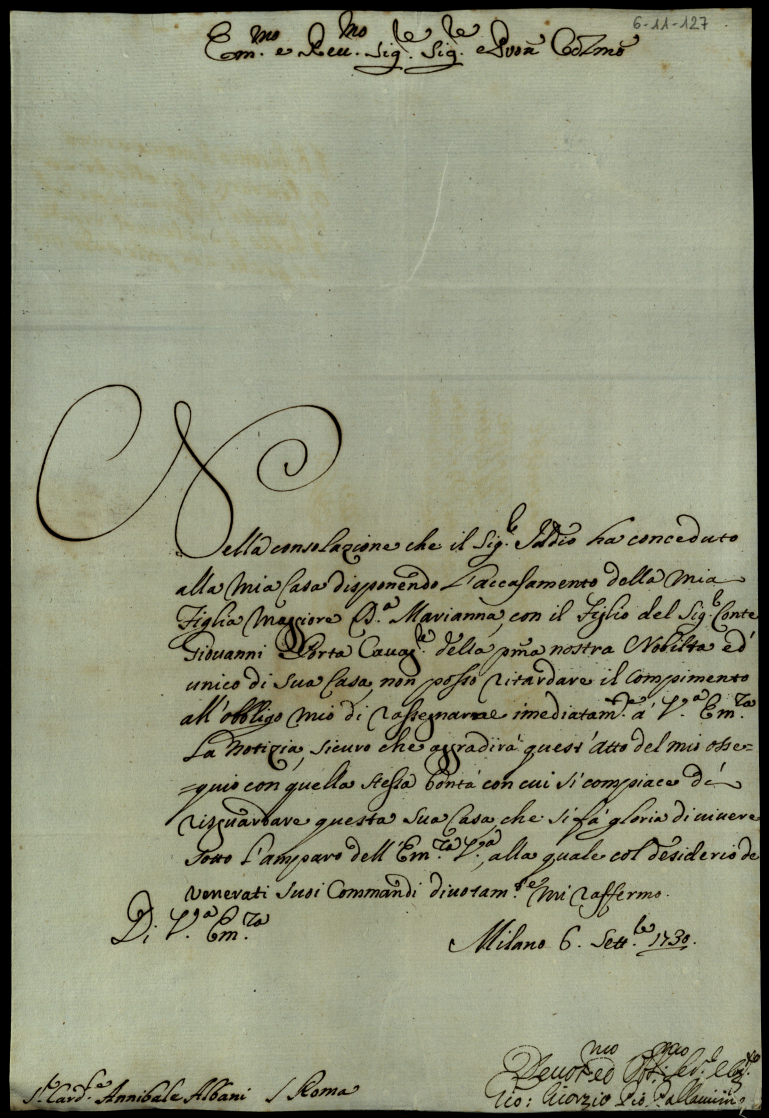 6-11-127
Em.mo e Reu.mo Sig.re Sig.re e Pron Colmo
Nella consolazione che il Sig.re Iddio ha conceduto
alla mia Casa disponendo l'accasamento della mia
Figlia Maggiore D.a Marianna, con il Figlio del Sig.r Conte
Giovanni Porta Cauag.re della pma nostra Nobilta ed
unico di sua Casa, non posso ritardare il compimento
all'obbligo mio di rassegnarne imediatam.te a' V.a Em.za
la notizia, sicuro che aggradirà quest'atto del mio osse=
=quio con quella stessa bontà con cui si compiace di
risguardare questa sua Casa, che si fà gloria di uiuere
sotto l'amparo dell'Em.za V.a, alla quale col desiderio de
venerati suoi Commandi diuotam.te mi raffermo.
Di V.a Em.za
Milano 6. Sett.re 1730.
Deuot.mo ed Obl.mo Ser.e
S.r Card.le Annibale Albani / Roma
Gio: Giorzio Pallauicini